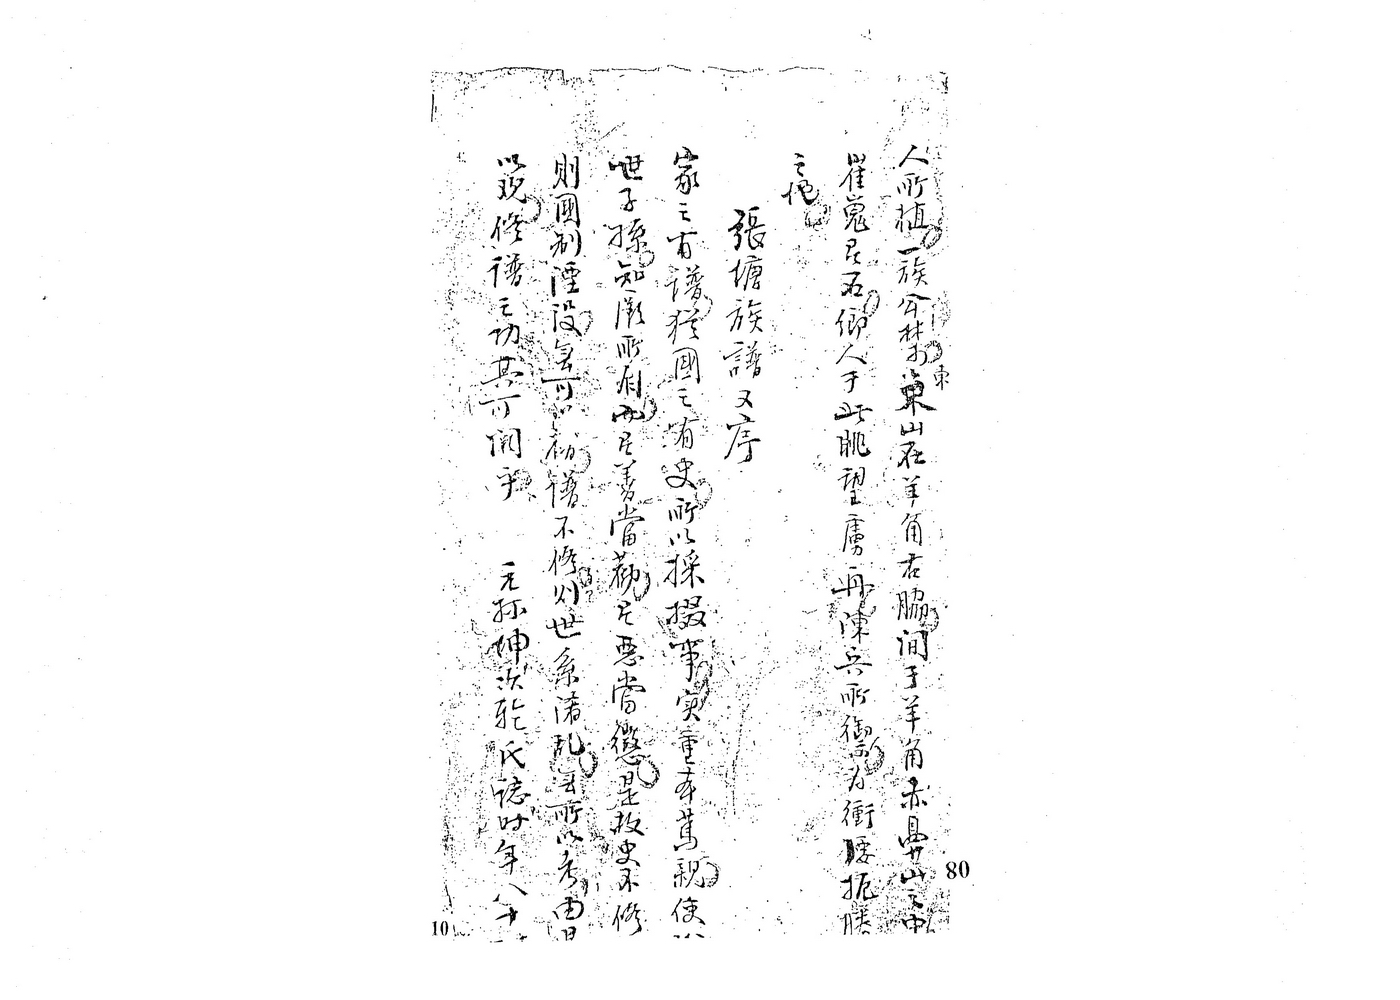 人所植一族分林於東山在羊角右脇間于羊角赤鼻廿山之中
東
崔嵬是石鄉人于此眺望虜舟陳兵所禦為衝要扼勝
之地
張塘族譜又序
家之有譜猶國之有史所以採掇事實重本篤親使後
世子孫知厥所有而是善當勸是惡當懲是故史不修
則國制湮沒無可以觀譜不修則世系淆亂無所以考由是
以觀修譜之功其可闕乎
元孫坤 乾氏誌時年八十
80
10